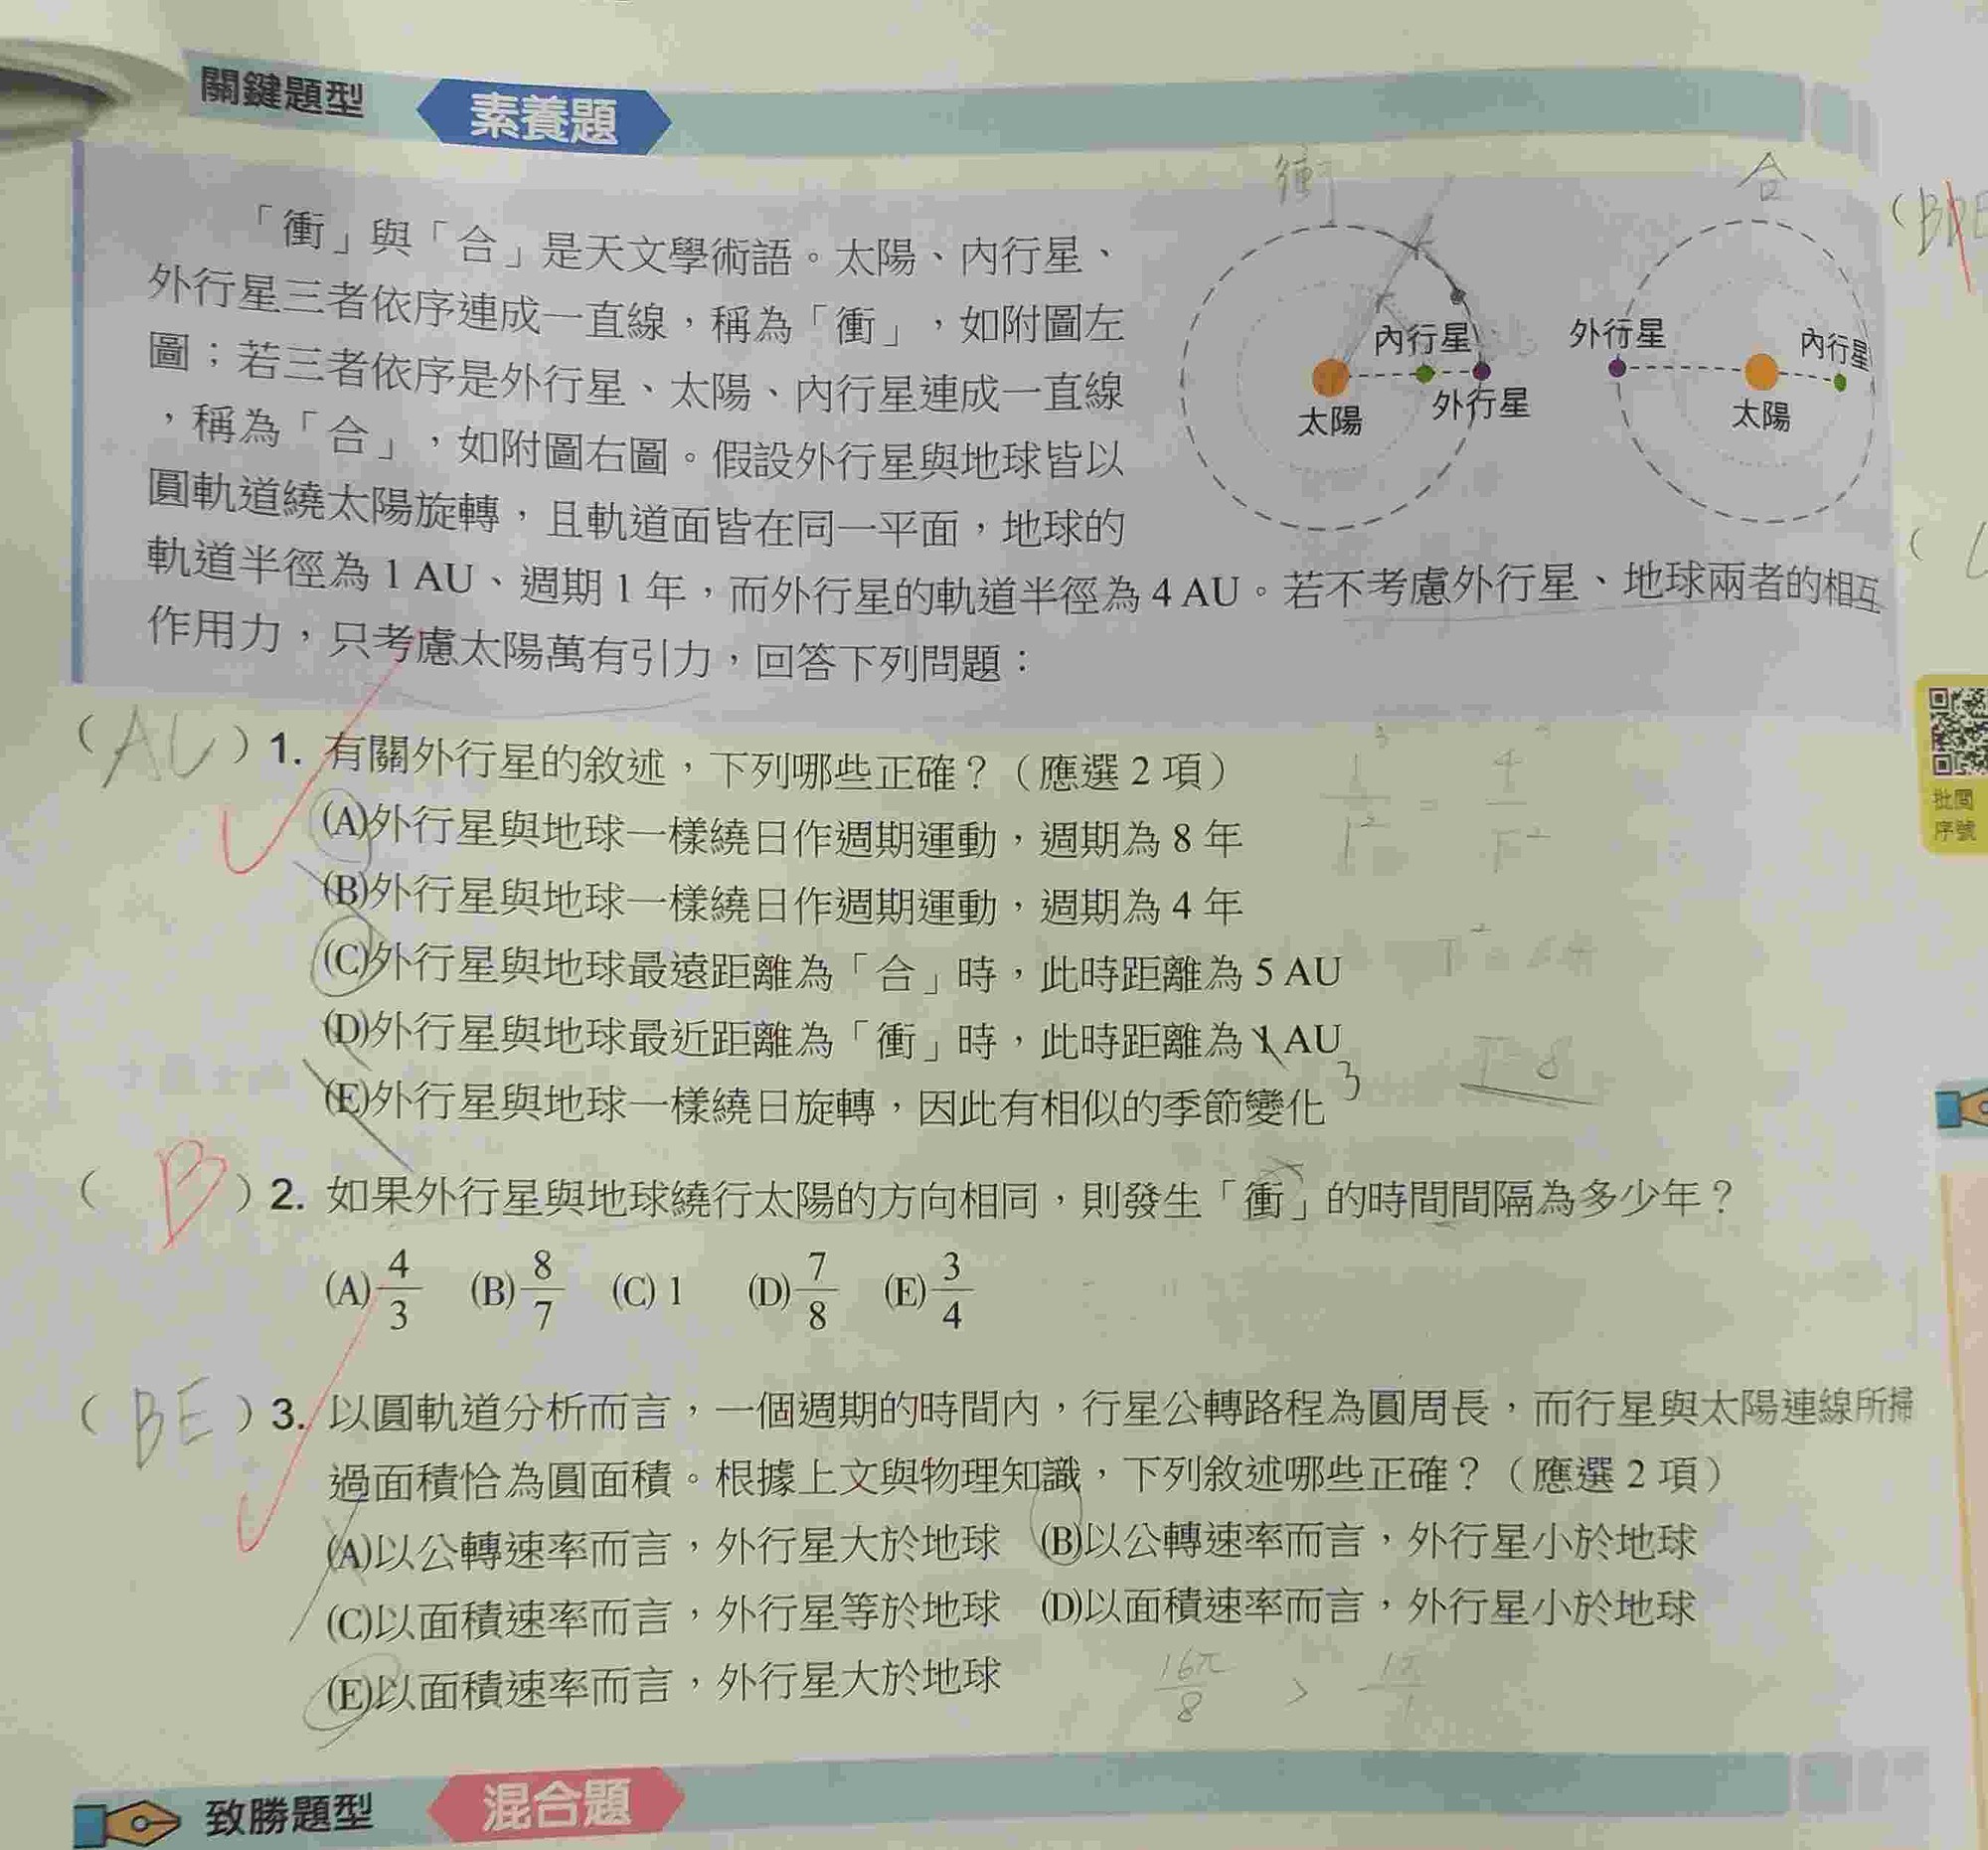 關鍵題型 素養題
衝 合
「衝」與「合」是天文學術語。太陽、內行星、
外行星三者依序連成一直線,稱為「衝」,如附圖左
圖;若三者依序是外行星、太陽、內行星連成一直線
,稱為「合」,如附圖右圖。假設外行星與地球皆以
圓軌道繞太陽旋轉,且軌道面皆在同一平面,地球的
軌道半徑為 1 AU、週期 1 年,而外行星的軌道半徑為 4 AU。若不考慮外行星、地球兩者的相互
作用力,只考慮太陽萬有引力,回答下列問題:
內行星
太陽
外行星
外行星
內行星
太陽
(AC)1. 有關外行星的敘述,下列哪些正確?(應選 2 項)
(A)外行星與地球一樣繞日作週期運動,週期為 8 年
(B)外行星與地球一樣繞日作週期運動,週期為 4 年
(C)外行星與地球最遠距離為「合」時,此時距離為 5 AU
(D)外行星與地球最近距離為「衝」時,此時距離為 1 AU
3
(E)外行星與地球一樣繞日旋轉,因此有相似的季節變化
T=8
(B)2. 如果外行星與地球繞行太陽的方向相同,則發生「衝」的時間間隔為多少年?
(A) 4/3 (B) 8/7 (C) 1 (D) 7/8 (E) 3/4
(BE)3. 以圓軌道分析而言,一個週期的時間內,行星公轉路程為圓周長,而行星與太陽連線所掃
過面積恰為圓面積。根據上文與物理知識,下列敘述哪些正確?(應選 2 項)
(A)以公轉速率而言,外行星大於地球 (B)以公轉速率而言,外行星小於地球
(C)以面積速率而言,外行星等於地球 (D)以面積速率而言,外行星小於地球
(E)以面積速率而言,外行星大於地球
16π/8 > 1π/1
致勝題型 混合題
批閱
序號